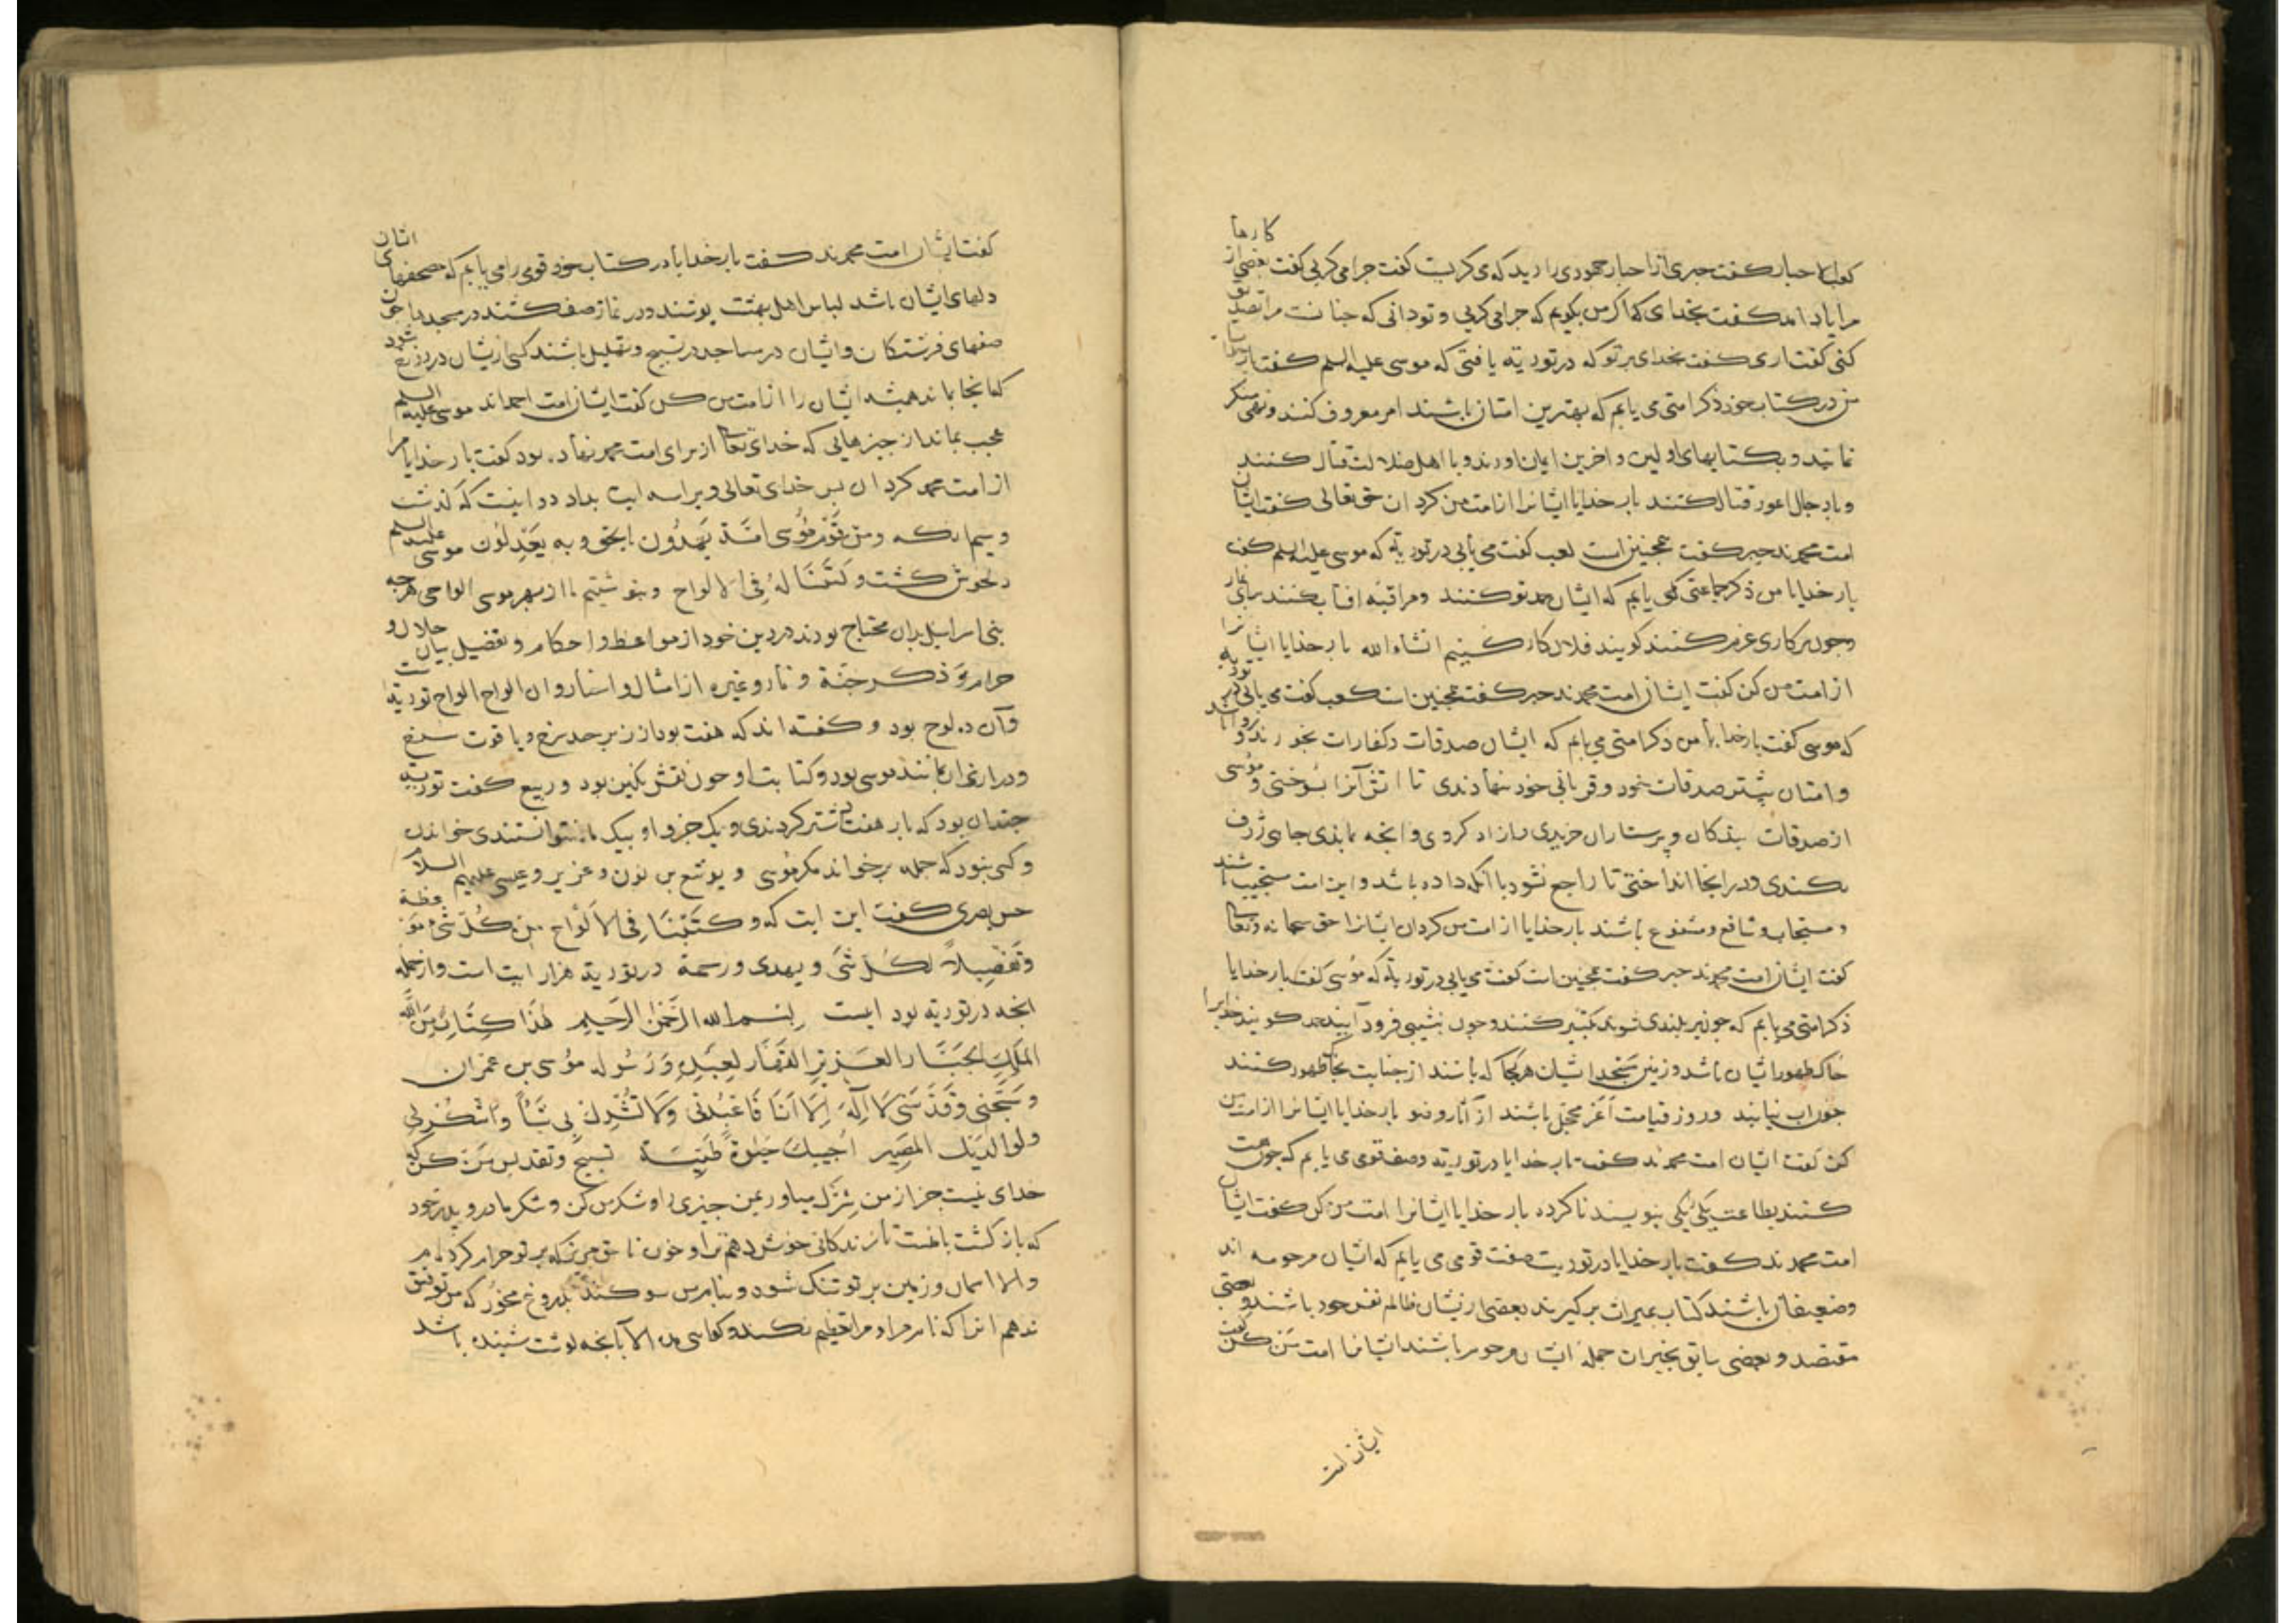 کعب الاحبار کفت حبری از احبار جهودی را دید که می کریست کفت چرا می کریی کفت بعضی از کارها
مرا یاد امد کفت بخدای که اکر من بکویم که چرا می کریی و تو دانی که چنانست مرا تصدیق
کنی کفت اری کفت بخدای بر تو که در توریة یافتی که موسی علیه السلم کفت بار خدایا
من در کتاب خود ذکر امتی می یابم که بهترین امتان باشند امر معروف کنند و نهی منکر
نمایند و بکتابهای اولین و اخرین ایمان اورند و با اهل ضلالت قتال کنند
و با دجال اعور قتال کنند بار خدایا ایشانرا از امت من کردان حق تعالی کفت ایشان
امت محمدند حبر کفت همچنین است کعب کفت می یابی در توریة که موسی علیه السلم کفت
بار خدایا من ذکر جماعتی می یابم که ایشان حمد تو کنند و مراقبه افتاب کنند برای نماز
و چون بر کاری عزم کنند کویند فلان کار کنیم انشاء الله بار خدایا ایشانرا
از امت من کن کفت ایشان امت محمدند حبر کفت همچنین است کعب کفت می یابی در توریة
که موسی کفت بار خدایا من ذکر امتی می یابم که ایشان صدقات و کفارات بخورند و
و امتان پیشتر صدقات خود و قربانی خود بنهادندی تا اتش آنرا بسوختی و موسی
از صدقات بندکان و پرستاران خریدی و ازاد کردی و انچه بماندی چاهی ژرف
بکندی و در انجا انداختی تا راجع نشود با انکه داده باشد و این امت مستجیب باشند
و مستجاب و شافع و مشفوع باشند بار خدایا از امت من کردان ایشانرا حق سبحانه و تعالی
کفت ایشان امت محمدند حبر کفت همچنین است کفت می یابی در توریة که موسی کفت بار خدایا
ذکر امتی می یابم که چون بر بلندی شوند تکبیر کنند و چون بنشیبی فرود آیند حمد کویند خدایرا
خاک طهور ایشان باشد و زمین مسجد ایشان هر کجا که باشند از جنابت بخاک طهور کنند
چون اب نیابند و روز قیامت اغر محجل باشند از آثار وضو بار خدایا ایشانرا از امت من
کن کفت ایشان امت محمدند کفت بار خدایا در توریة وصف قومی می یابم که چون همت
کنند بطاعت یکی نیکی بنویسند ناکرده بار خدایا ایشانرا امت من کن کفت ایشان
امت محمدند کفت بار خدایا در توریت صفت قومی می یابم که ایشان مرحومه اند
و ضعیفان باشند کتاب بمیراث برکیرند بعضی ازیشان ظالم نفس خود باشند و بعضی
مقتصد و بعضی سابق بخیرات جمله ایشان مرحوم باشند ایشانرا امت من کن کفت
ایشان امت
کفت ایشان امت محمدند کفت بار خدایا در کتاب خود قومی را می یابم که مصحفهای ایشان
دلهای ایشان باشد لباس اهل بهشت پوشند و در نماز صف کشند در مسجدها چون
صفهای فرشتکان و ایشان در مساجد در تسبیح و تهلیل باشند کس ازیشان در دوزخ نشود
که انجا بماند همیشه ایشان را از امت من کن کفت ایشان امت احمد اند موسی علیه السلم
عجب بماند از چیزهایی که خدای تعالی از برای امت محمد نهاده بود کفت بار خدایا مرا
از امت محمد کردان پس خدای تعالی ویرا سه ایت بداد دو اینست که کذشت
و سیم انکه ومن قوم موسی امة یهدون بالحق و به یعدلون موسی علیه السلم
دلخوش کشت وکتبنا له فی الالواح و بنوشتیم ما از بهر موسی الواحی هرچه
بنی اسراییل بدان محتاج بودند در دین خود از مواعظ و احکام و تفضیل بیان حلال و
حرام و ذکر جنة و نار و غیره از امثال و اسناد و ان الواح الواح توریة
و آن ده لوح بود و کفته اند که هفت بود از زبرجد سرخ و یاقوت سرخ
و درازی ان مانند موسی بود و کتابت او چون نقش نکین بود و ربیع کفت توریة
چندان بود که بار هفتاد شتر کردندی و یک جزو او بیک سال نتوانستندی خواندن
و کس نبود که جمله بر خواند مکر موسی و یوشع بن نون و عزیر و عیسی علیهم السلام
حسن بصری کفت این ایت که وکتبنا فی الالواح من کل شیء موعظة
وتفصیلا لکل شی و یهدی و رحمة در توریة هزار ایت است و از جمله
انچه در توریة بود اینست بسم الله الرحمن الرحیم هذا کتاب من الله
الملک الجبار العزیز القهار لعبده ورسوله موسی بن عمران
وسبحنی وقدسنی لا اله الا انا فاعبدنی ولا تشرک بی شیا واشکر لی
ولوالدیک المصیر احییک حیوة طیبة تسبیح و تقدیس من کن که
خدای نیست جز از من شرک میاور بمن چیزی را و شکر من کن و شکر مادر و پدر خود
که بازکشت با منست تا زندکانی خوش دهم ترا و خون ناحق مریز که بر تو حرام کرده ام
والا اسمان و زمین بر تو تنک شود و بنام من سوکند بدروغ مخور که من توفیق
ندهم انرا که نام مرا و مرا تعظیم نکند و کواهی مده الا بانچه کوشت شنیده باشد